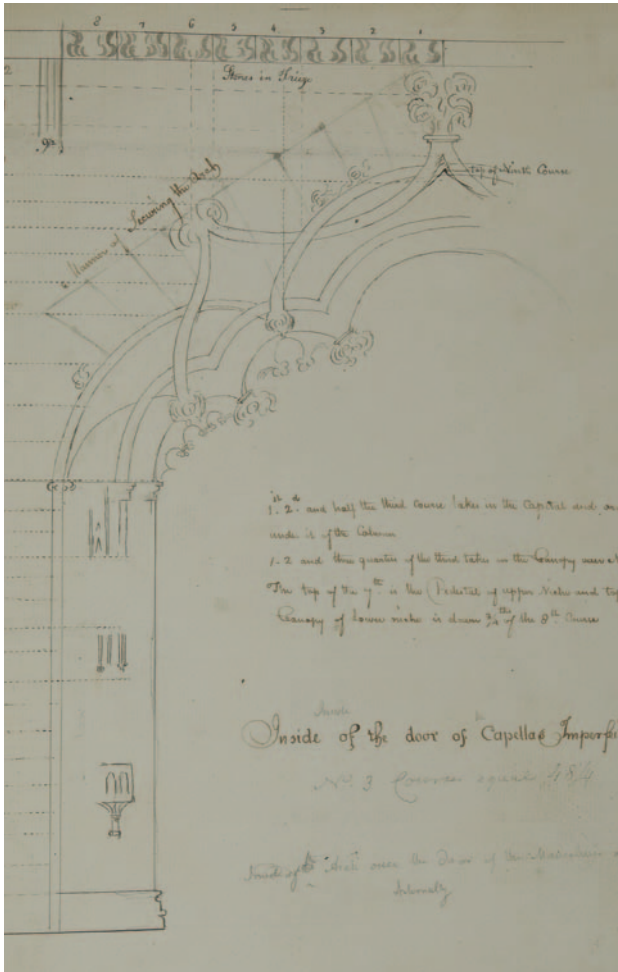 8 7 6 5 4 3 2 1
Stones in Frieze
2
9¾
top of Ninth Course
Manner of Securing the Arch
1.st 2.d and half the third Course takes in the Capital and
under it of the Column
1. 2 and three quarters of the third takes in the Canopy
The top of the 7th is the Pedestal of upper Niche and top
Canopy of lower niche is down ¾ths of the 8th Course
Inside
Inside of the door of Capellas Imperfe
No. 3 Courses equal
Inside of the Arch over the Door of the Mausoleum